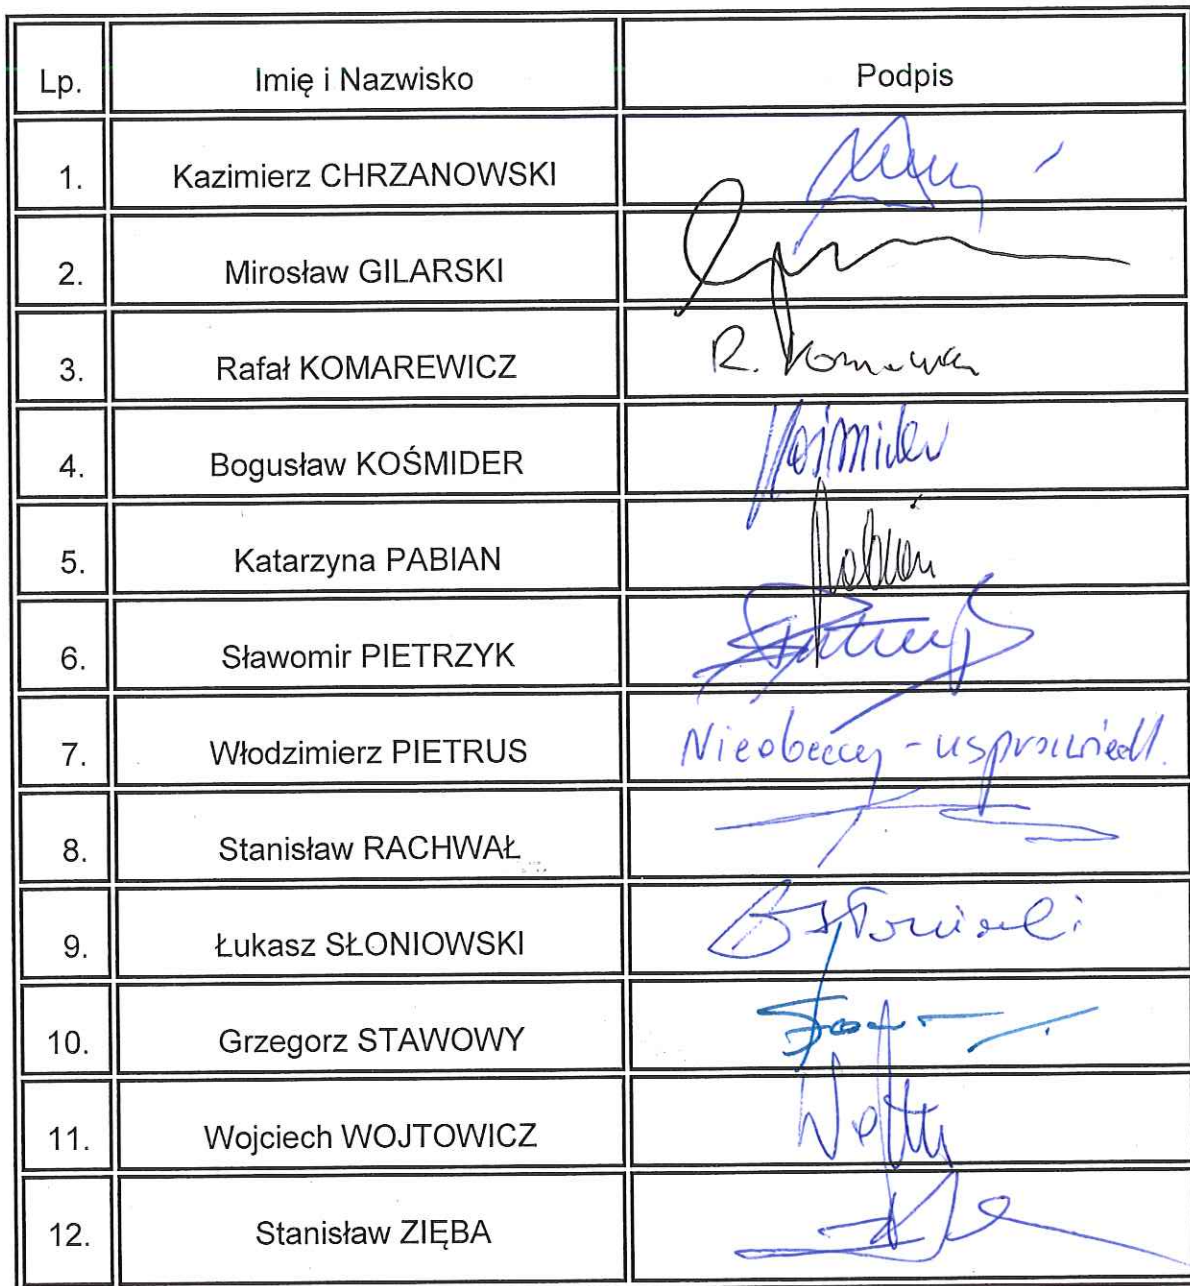 Lp. Imię i Nazwisko Podpis
1. Kazimierz CHRZANOWSKI
2. Mirosław GILARSKI
3. Rafał KOMAREWICZ R.
4. Bogusław KOŚMIDER Kośmider
5. Katarzyna PABIAN Pabian
6. Sławomir PIETRZYK
7. Włodzimierz PIETRUS Nieobecny - usprawiedl.
8. Stanisław RACHWAŁ
9. Łukasz SŁONIOWSKI
10. Grzegorz STAWOWY
11. Wojciech WOJTOWICZ
12. Stanisław ZIĘBA